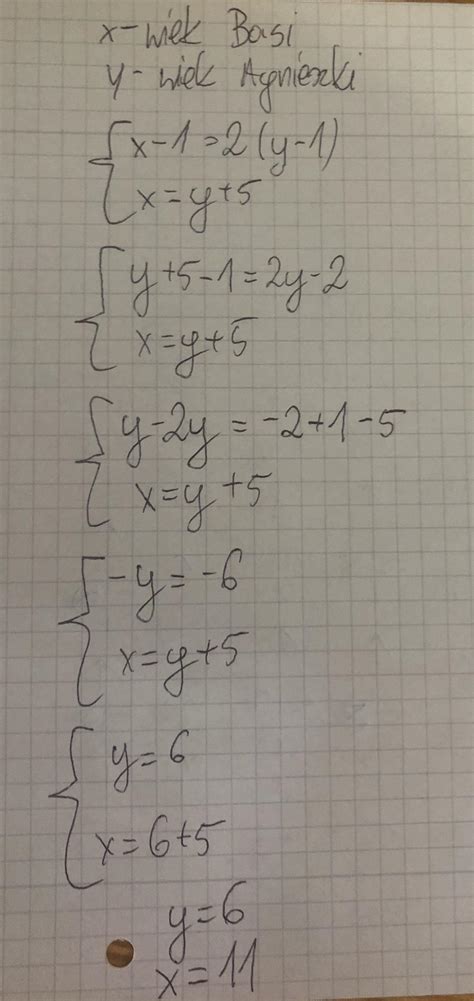 x - wiek Basi
y - wiek Agnieszki
x-1=2(y-1)
x=y+5
y+5-1=2y-2
x=y+5
y-2y=-2+1-5
x=y+5
-y=-6
x=y+5
y=6
x=6+5
y=6
x=11